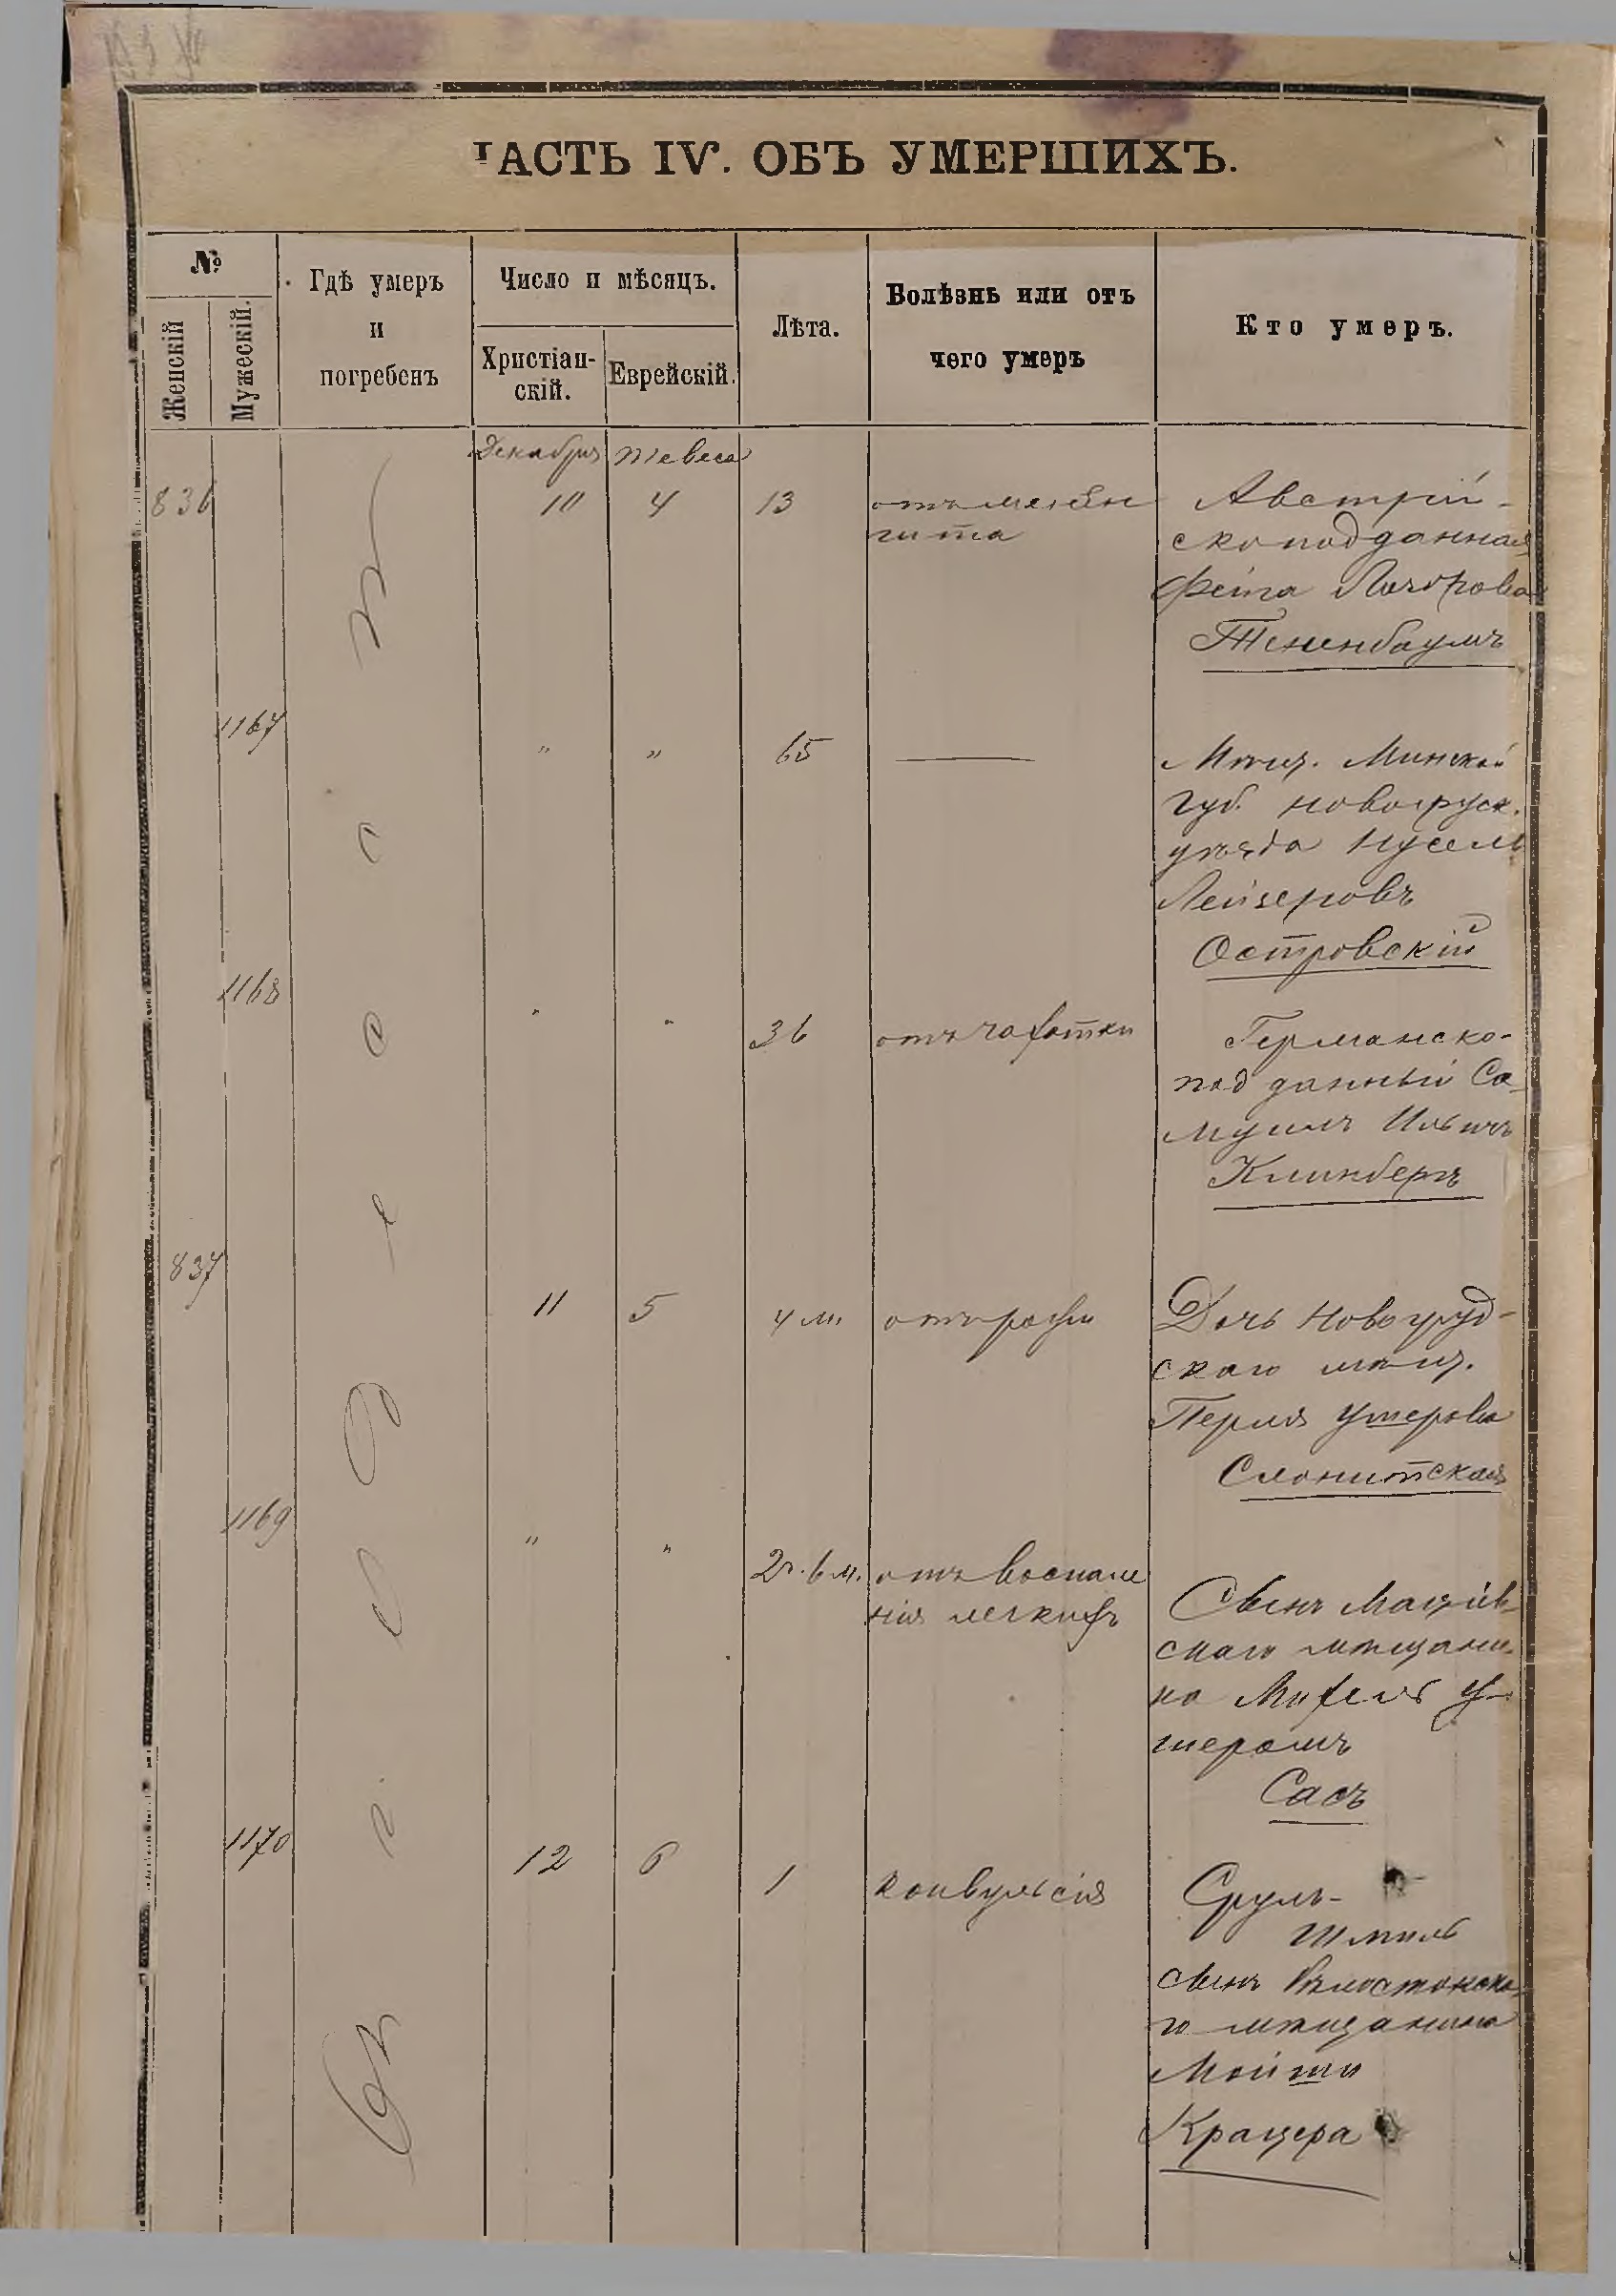 ЧАСТЬ IV. ОБЪ УМЕРШИХЪ.
№
Женскій
Мужескій.
Гдѣ умеръ
и
погребенъ
Число и мѣсяцъ.
Христіан-
скій.
Еврейскій.
Лѣта.
Болѣзнь или отъ
чего умеръ
Кто умеръ.
Декабря Тевеса
Въ г. Одессѣ
836 10 4 13 отъ менин Австрій-
гита скоподданная
Фейга
Тененбаумъ
1167 " " 65 — Мѣщ. Минской
губ. Новогрудск.
уѣзда Нусель
Лейзеровъ
Островскій
1168 " " 36 отъ чахотки Германско-
подданный Са
муилъ Ильичъ
Клинбергъ
837 11 5 4 м. отъ рожи Дочь Новогруд-
скаго мѣщ.
Перля Ушерова
Слонимская
1169 " " 2 г. 6 м. отъ воспале
нія легкихъ Сынъ
скаго мѣщани-
на Михель У-
шеромъ
Сасъ
1170 12 6 1 конвульсія Сруль-
Шмиль
сынъ Бѣлостокска
го мѣщанина
Мойши
Крацера